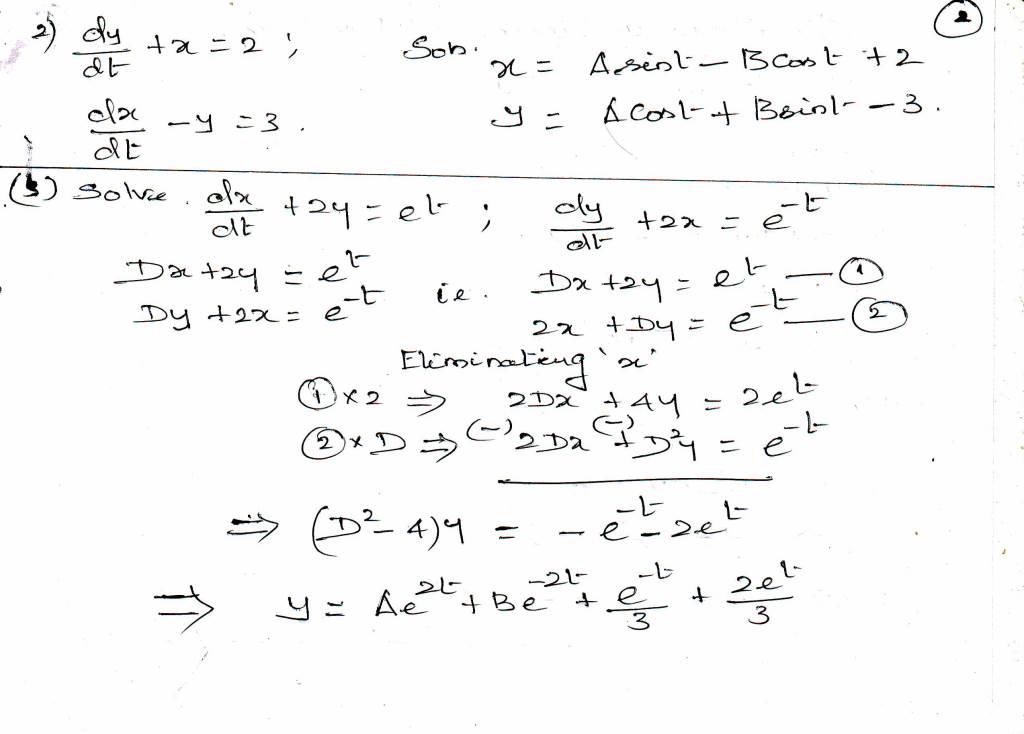 ②
2) dy/dt + x = 2 ; Soln. x = A sint - B cost + 2
dx/dt - y = 3 . y = A cost + B sint - 3 .
(3) Solve . dx/dt + 2y = e^t ; dy/dt + 2x = e^-t
Dx + 2y = e^t i.e. Dx + 2y = e^t — ①
Dy + 2x = e^-t 2x + Dy = e^-t — ②
Eliminating 'x'
① × 2 ⇒ 2Dx + 4y = 2e^t
② × D ⇒ (-) 2Dx (-) + D²y = e^-t
⇒ (D² - 4) y = - e^-t - 2e^t
⇒ y = Ae^2t + Be^-2t + e^-t/3 + 2e^t/3